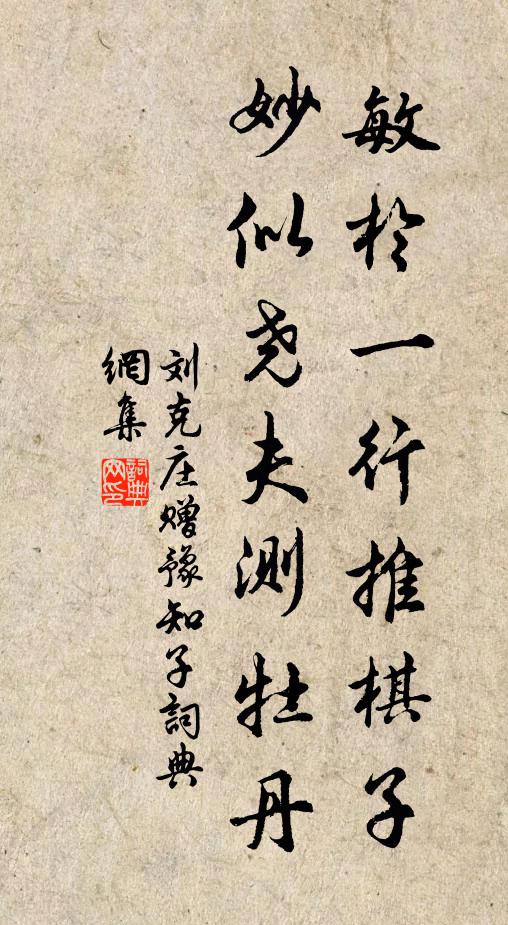 敏於一行推棋子
妙似尧夫测牡丹
刘克庄赠豫知子詞典
網集
詞典
网印